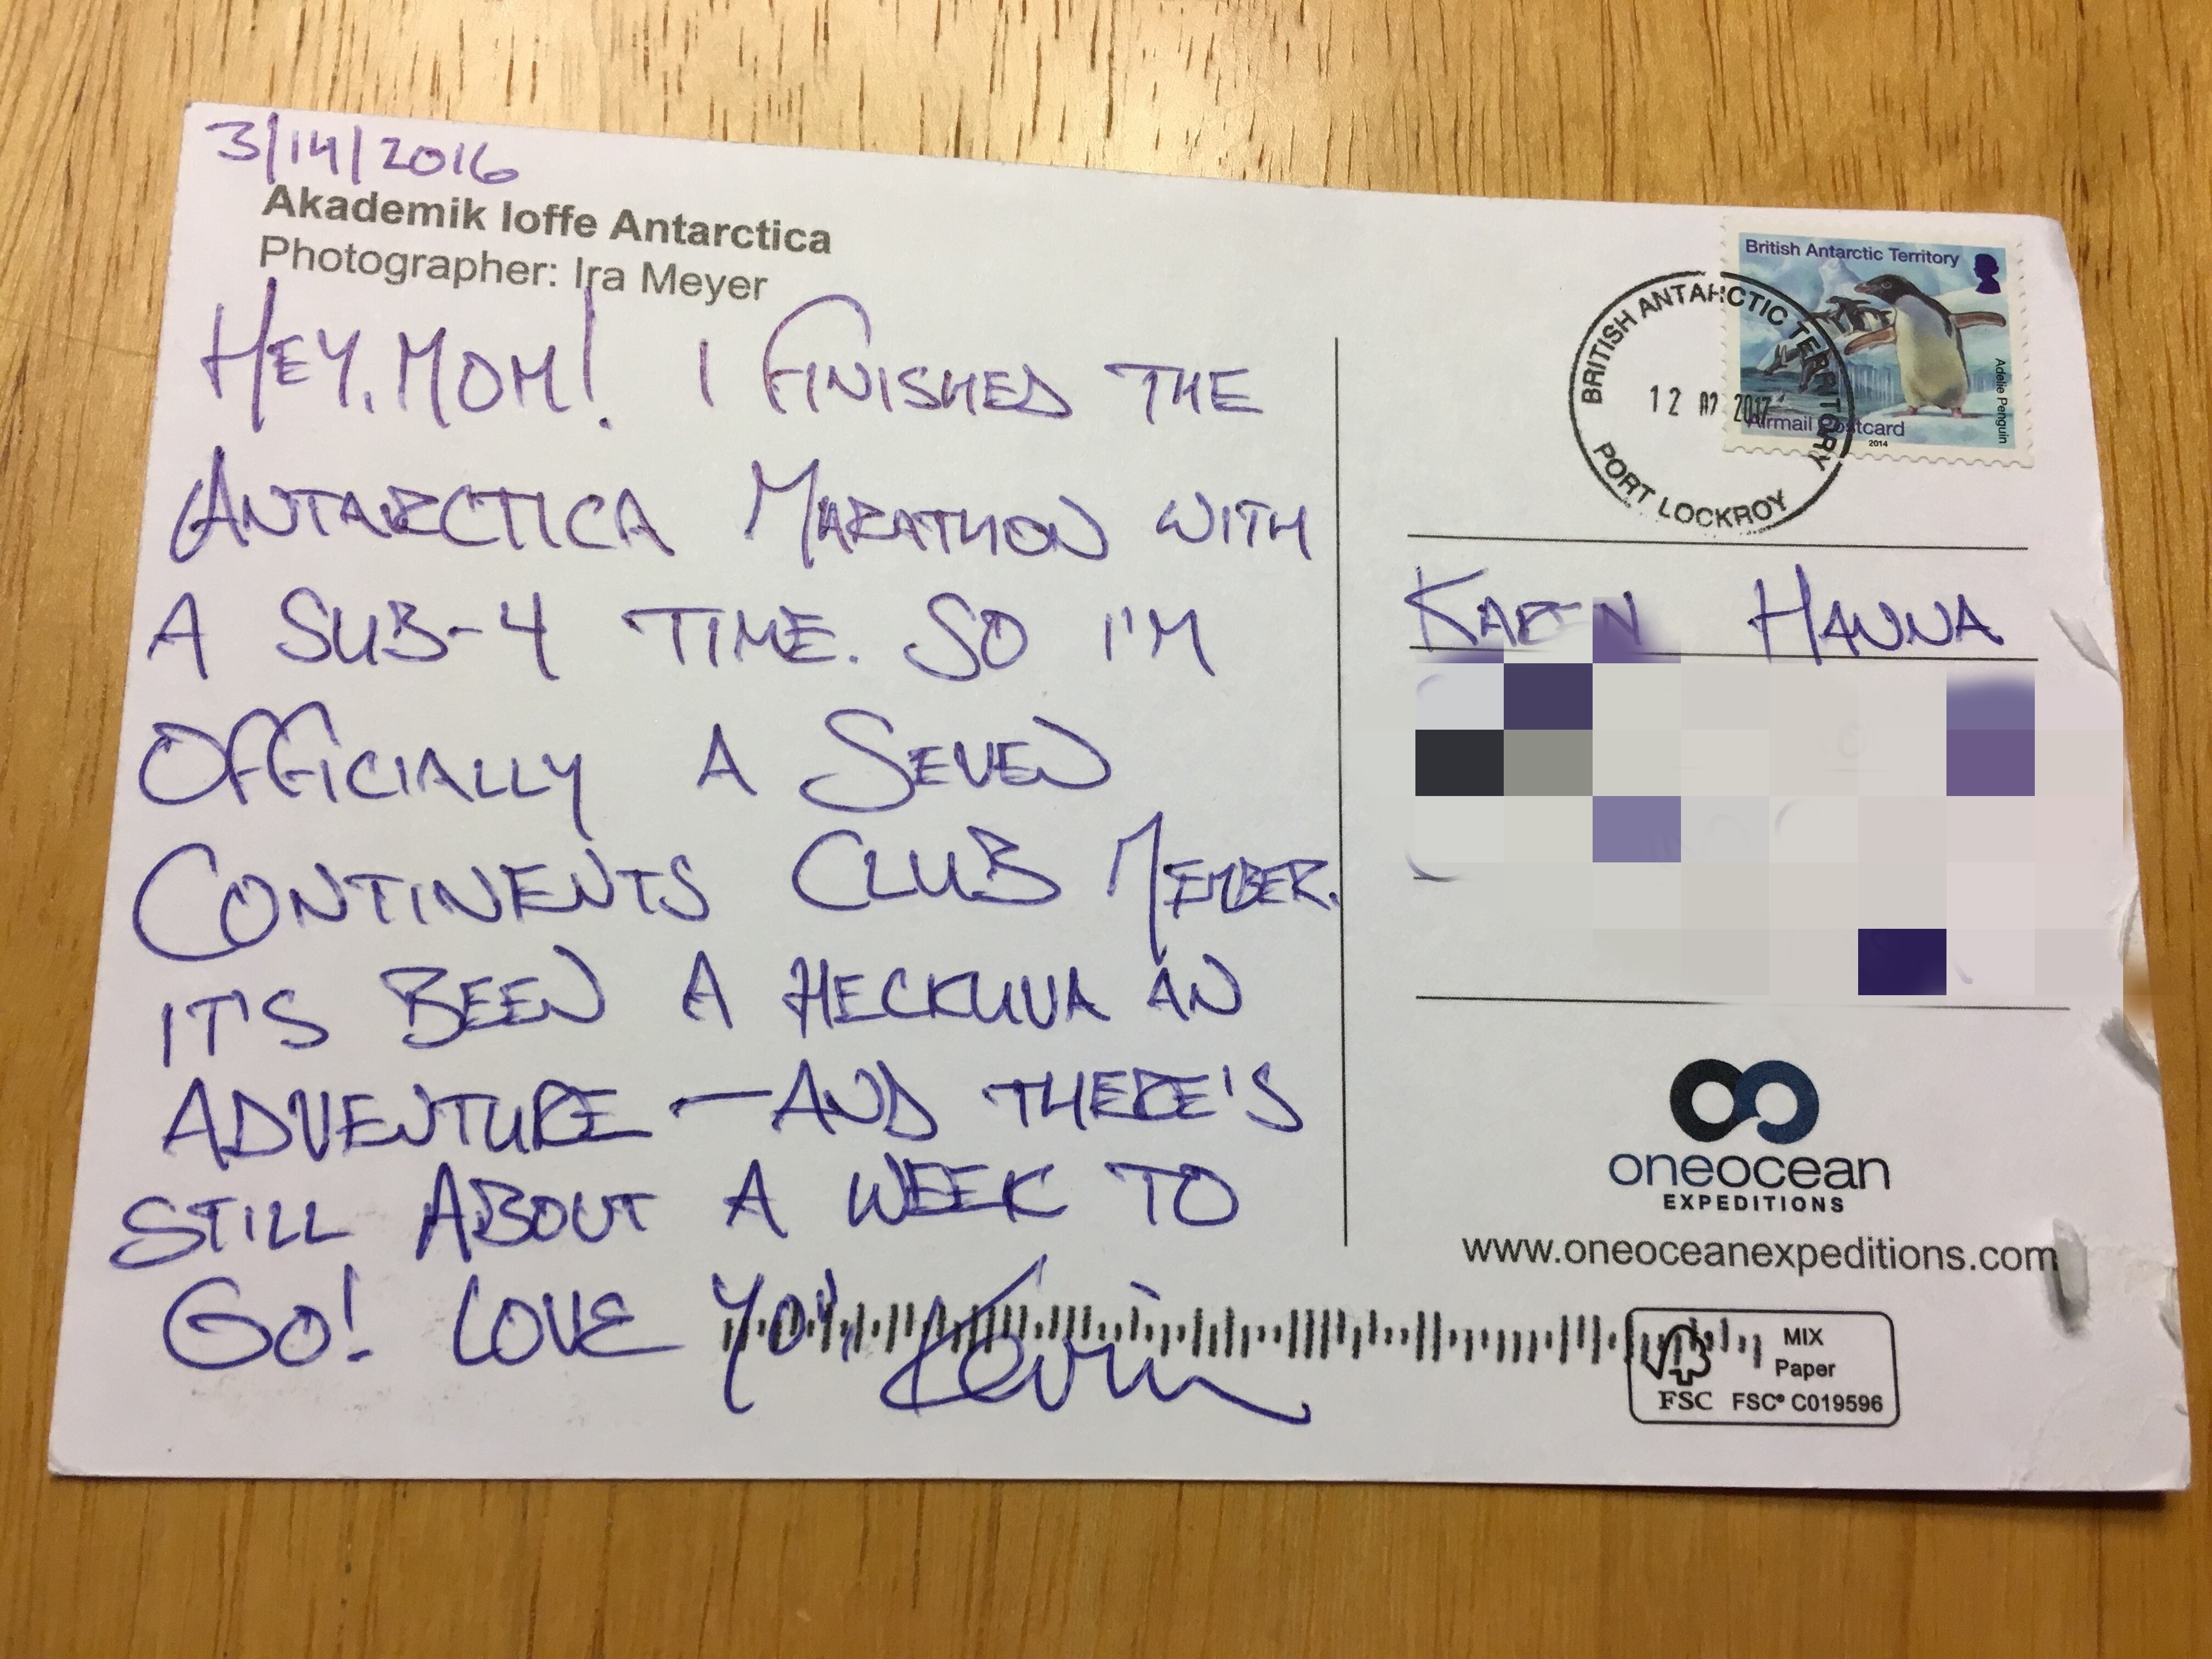 3/14/2016
Akademik Ioffe Antarctica
Photographer: Ira Meyer
HEY, MOM! I FINISHED THE
ANTARCTICA MARATHON WITH
A SUB-4 TIME. SO I'M
OFFICIALLY A SEVEN
CONTINENTS CLUB MEMBER.
IT'S BEEN A HECKUVA AN
ADVENTURE — AND THERE'S
STILL ABOUT A WEEK TO
GO! LOVE YOU, Kevin
British Antarctic Territory
Adelie Penguin
Airmail Postcard
2014
BRITISH ANTARCTIC TERRITORY
12 2017
PORT LOCKROY
KAREN HANNA
oneocean
EXPEDITIONS
www.oneoceanexpeditions.com
MIX
Paper
FSC FSC® C019596